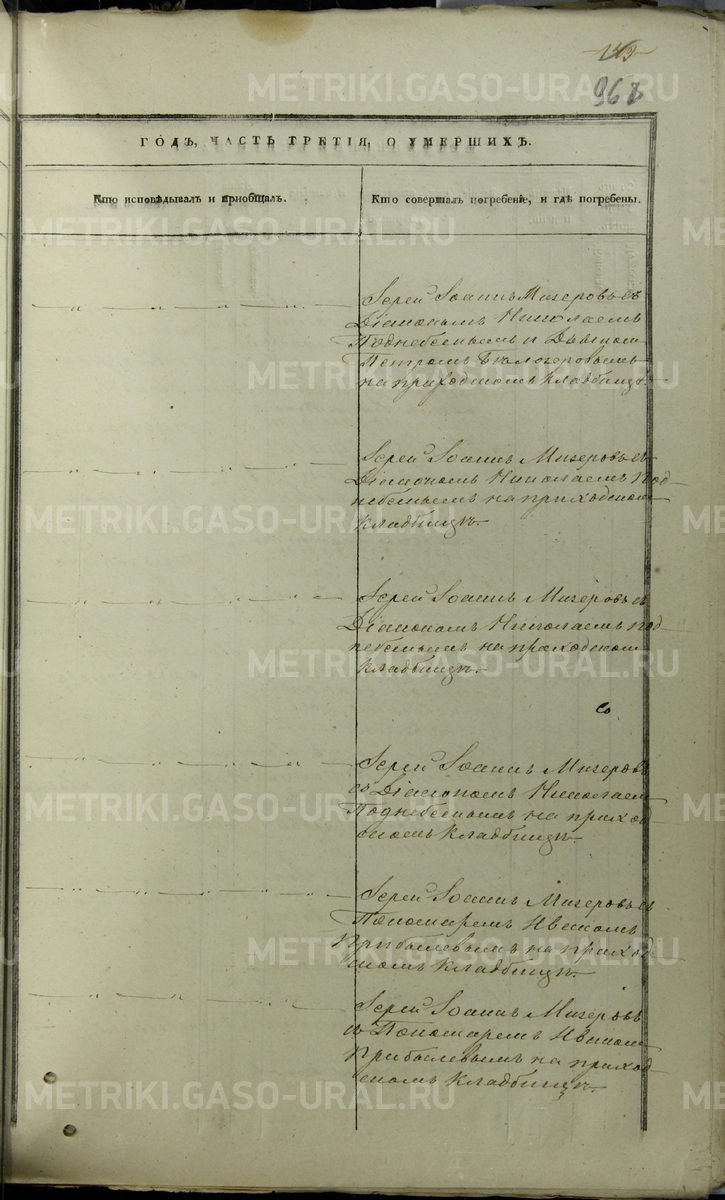 143
968
ГОДЪ, ЧАСТЬ ТРЕТІЯ, О УМЕРШИХЪ.
Кто исповѣдывалъ и приобщалъ.
Кто совершалъ погребеніе, и гдѣ погребены.
Іерей Іоаннъ Мизеровъ съ
Діакономъ Николаемъ
Поднебеснымъ и Дьячкомъ
Петромъ Бѣлозеровымъ
на приходскомъ кладбищѣ.
Іерей Іоаннъ Мизеровъ съ
Діакономъ Николаемъ Под
небеснымъ на приходскомъ
кладбищѣ.
Іерей Іоаннъ Мизеровъ съ
Діакономъ Николаемъ Под
небеснымъ на приходском
кладбищѣ.
Со
Іерей Іоаннъ Мизеровъ
съ Діакономъ Николаем
Поднебеснымъ на приход
скомъ кладбищѣ.
Іерей Іоаннъ Мизеровъ съ
Пономаремъ Иваномъ
Прибылевымъ на приход
скомъ кладбищѣ.
Іерей Іоаннъ Мизеровъ
съ Пономаремъ Иваном
Прибылевымъ на приход
скомъ кладбищѣ.
METRIKI.GASO-URAL.RU